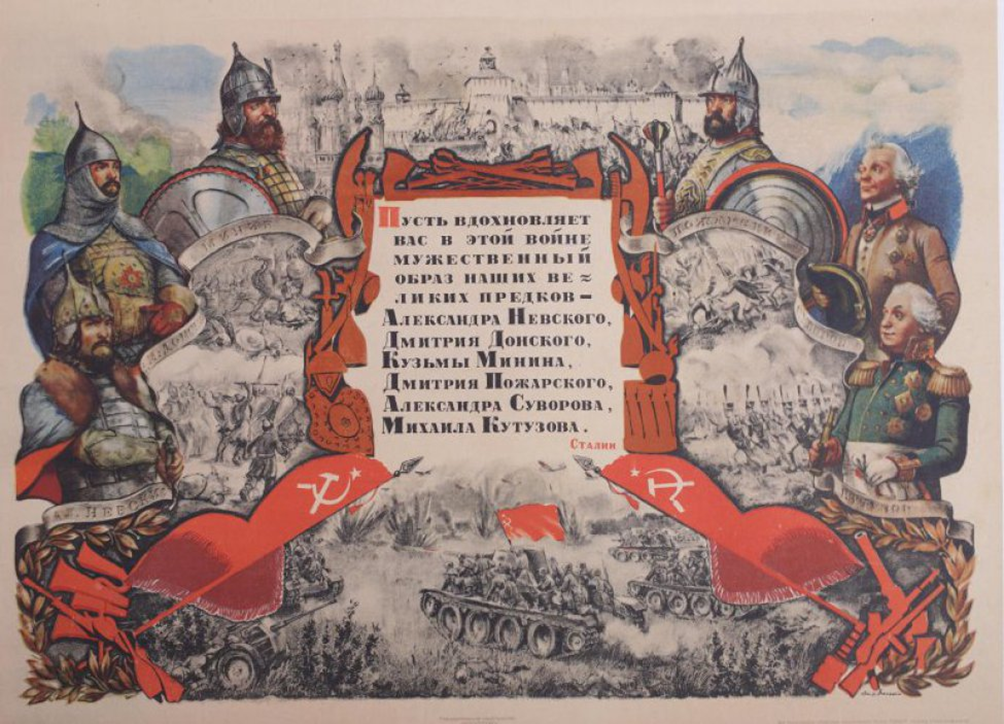 Пусть вдохновляет
вас в этой войне
мужественный
образ наших ве=
ликих предков –
Александра Невского,
Дмитрия Донского,
Кузьмы Минина,
Дмитрия Пожарского,
Александра Суворова,
Михаила Кутузова.
Сталин